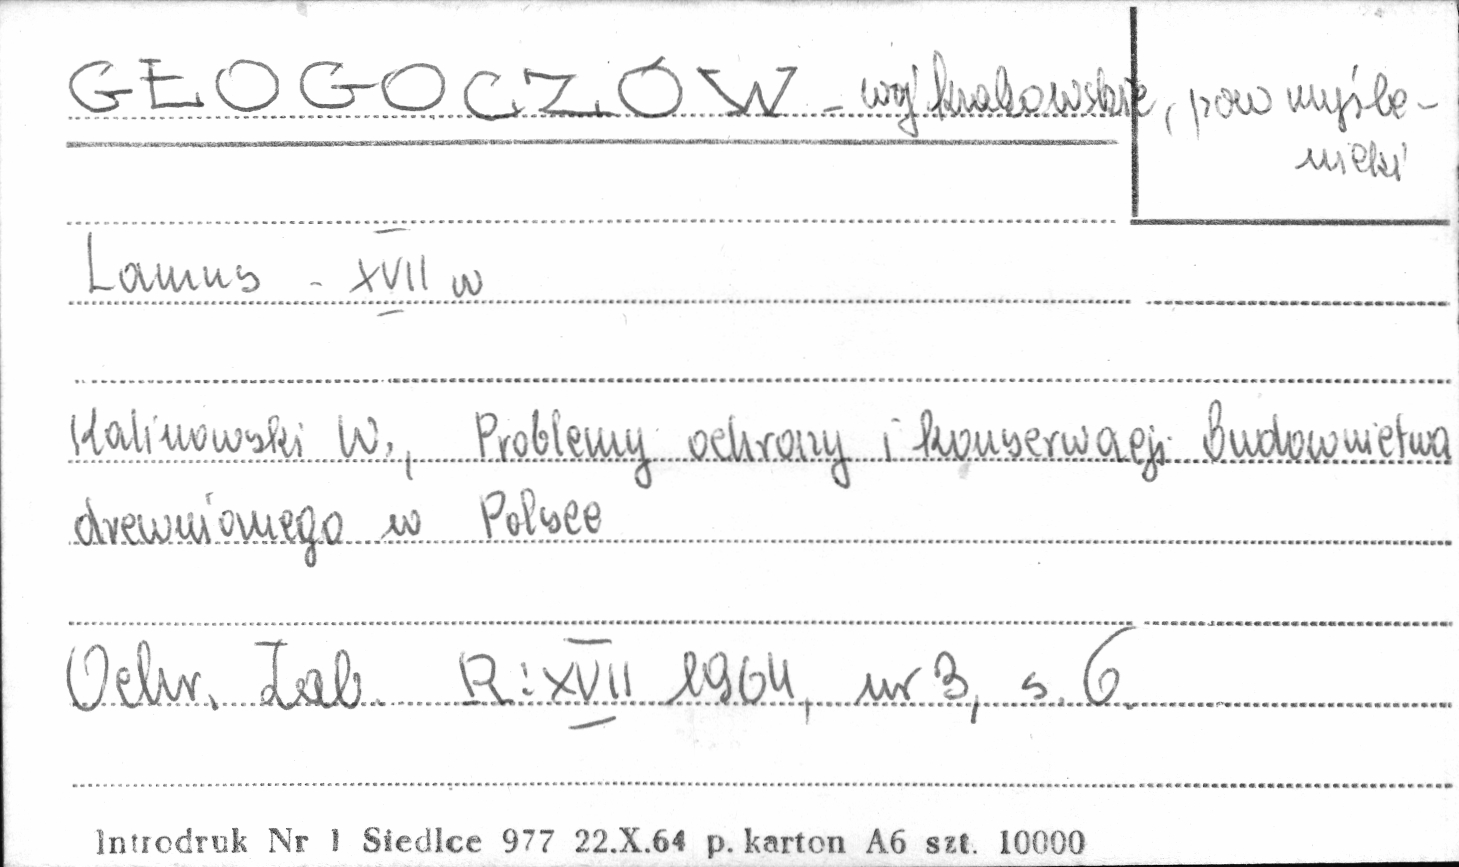 GŁOGOCZÓW - woj krakowskie, pow myśle-
nicki
Lamus - XVII w
Kalinowski W., Problemy ochrony i konserwacji Budownictwa
drewnianego w Polsce
Ochr. Zab. R: XVII 1964, nr 3, s. 6.
Introdruk Nr 1 Siedlce 977 22.X.64 p. karton A6 szt. 10000